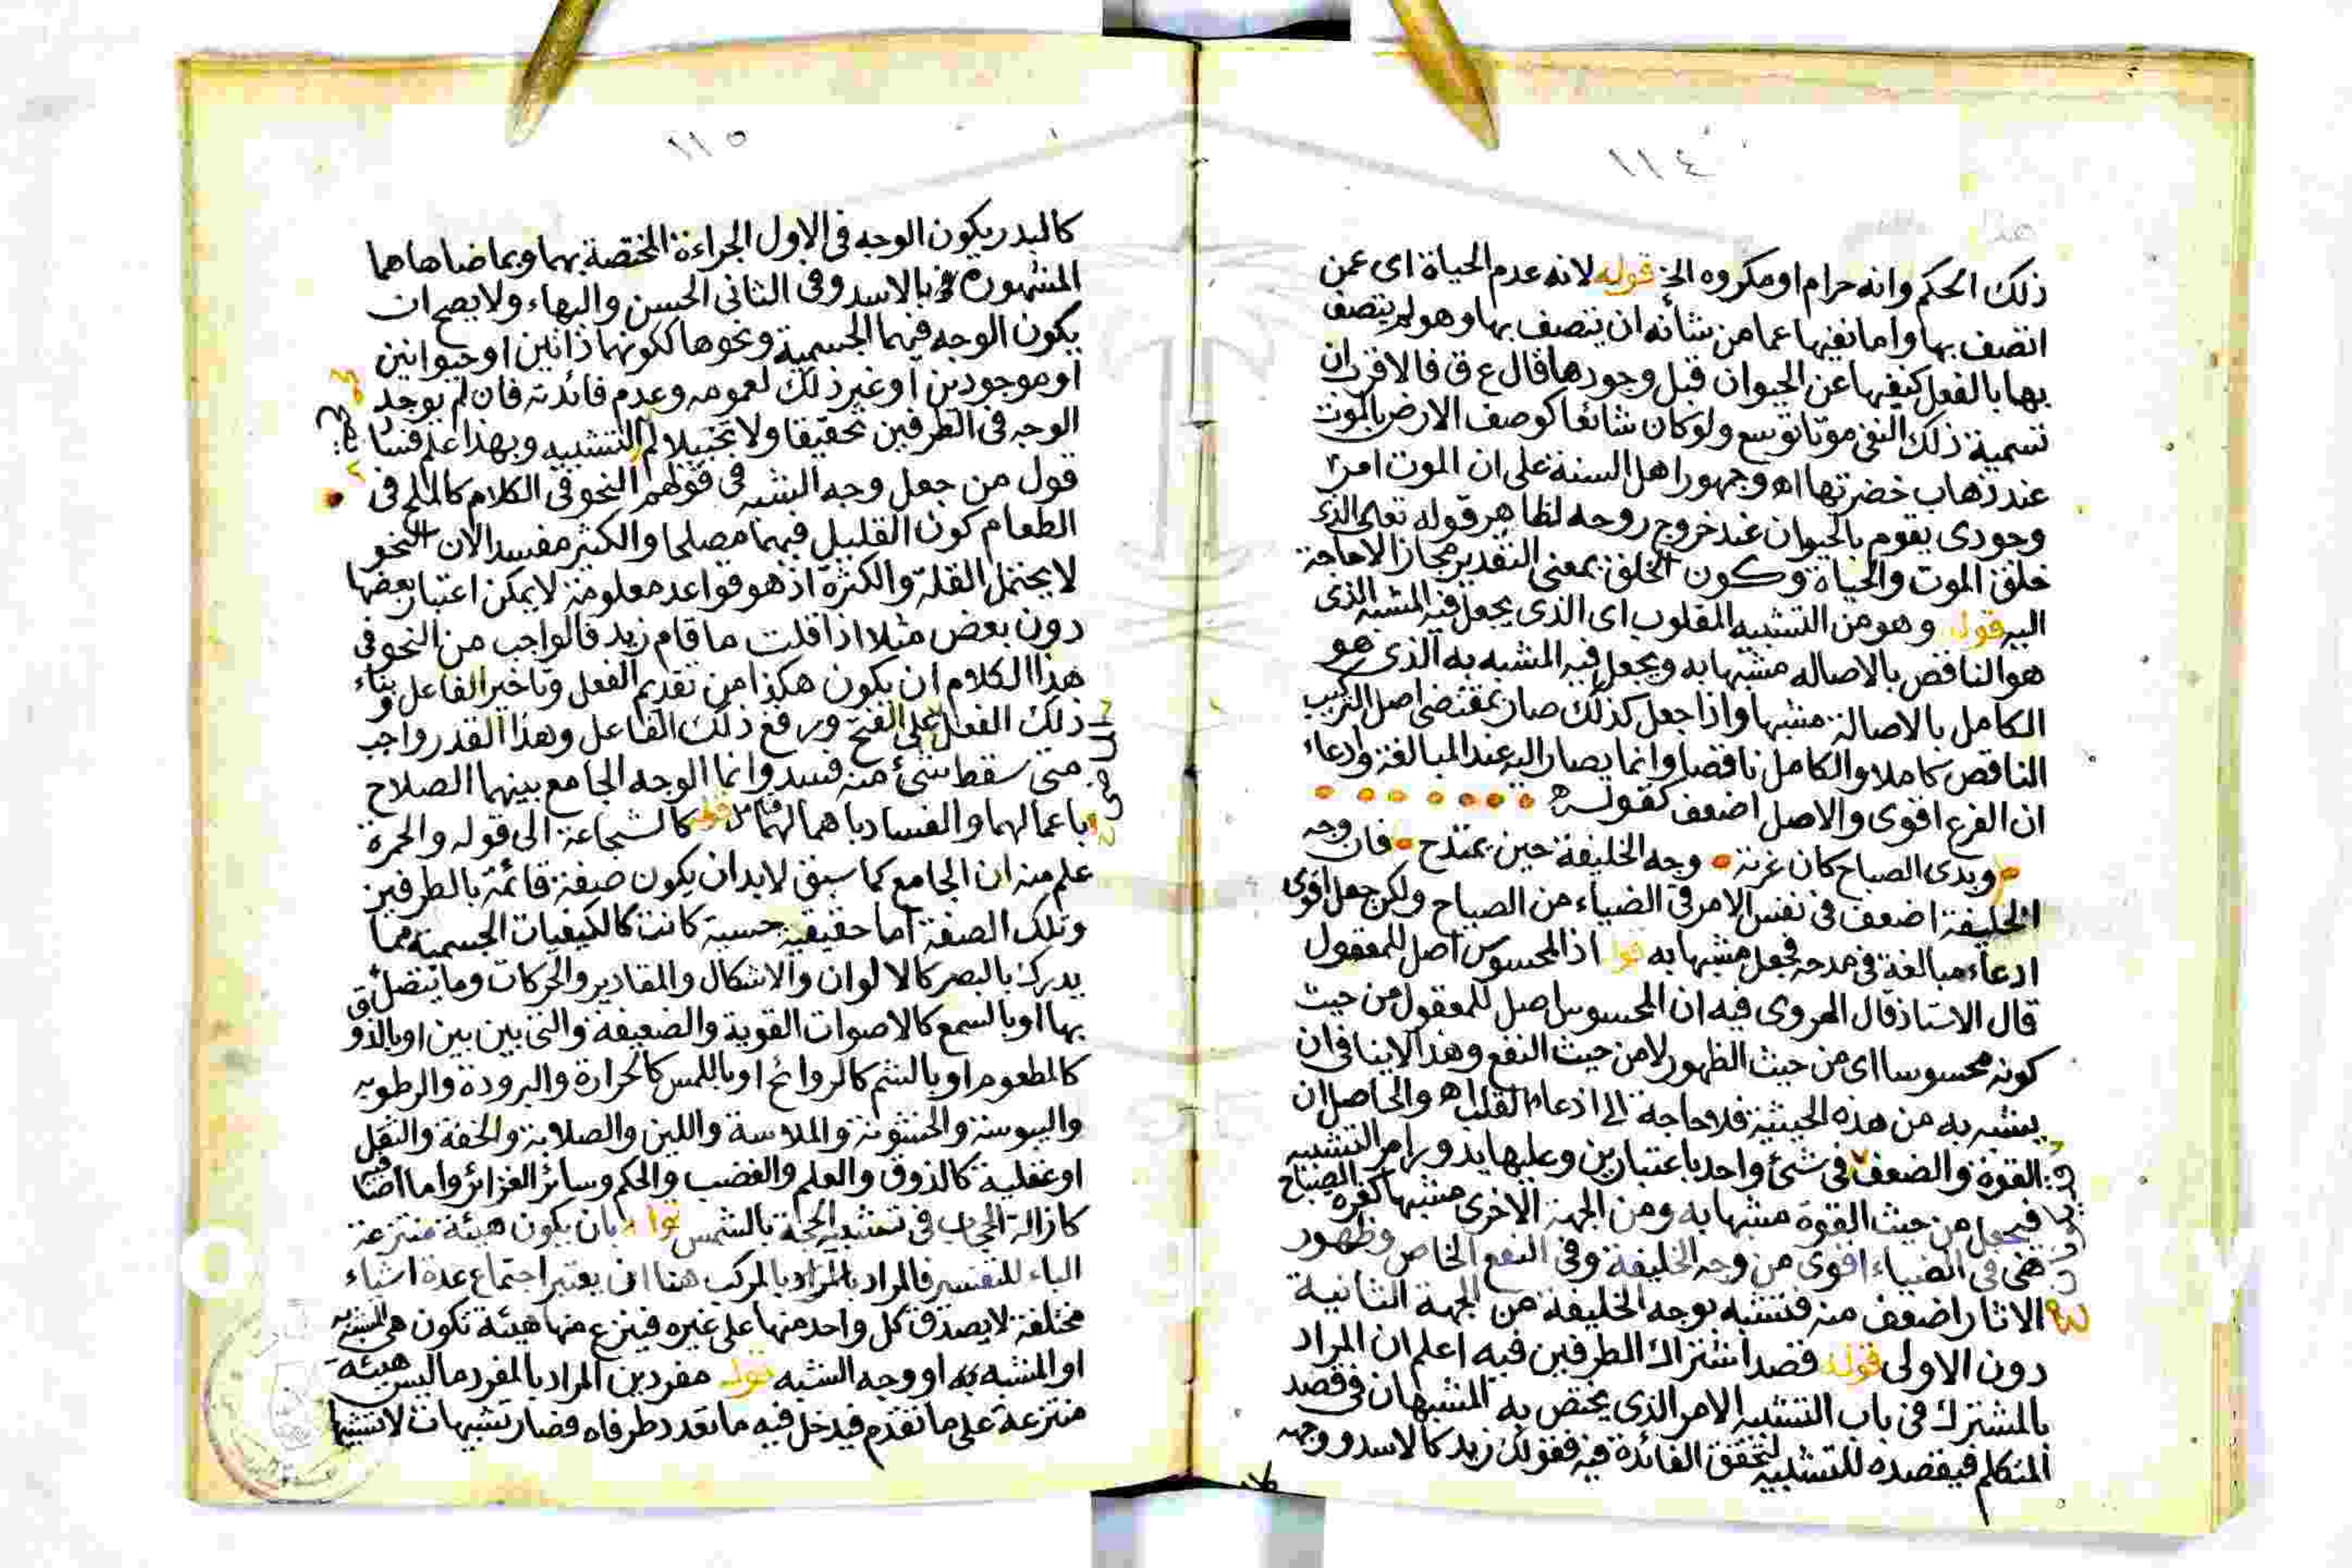 ١١٤
ذلك الحكم وانه حرام او مكروه الخ قوله لانه عدم الحياة اى عمن
اتصف بها واما نفيها عما من شأنه ان يتصف بها وهو لم يتصف
بها بالفعل كنفيها عن الحيوان قبل وجودها قال ع ق فالاقرب ان
تسمية ذلك النفى موتا توسع ولو كان شائعا كوصف الارض بالموت
عند ذهاب خضرتها اه وجمهور اهل السنة على ان الموت امر
وجودى يقوم بالحيوان عند خروج روحه لظاهر قوله تعالى الذى
خلق الموت والحياة وكون الخلق بمعنى التقدير مجاز الا حاجة
اليه قوله وهو من التشبيه المقلوب اى الذى يجعل فيه المشبه الذى
هو الناقص بالاصاله مشبها به ويجعل فيه المشبه به الذى هو
الكامل بالاصالة مشبها واذا جعل كذلك صار بمقتضى اصل التركيب
الناقص كاملا والكامل ناقصا وانما يصار اليه عند المبالغة وادعاء
ان الفرع اقوى والاصل اضعف كقوله
وبدى الصباح كان غرته وجه الخليفة حين يمتدح فان وجه
الخليفة اضعف فى نفس الامر فى الضياء من الصباح ولكن جعل اقوى
ادعاء مبالغة فى مدحه فجعل مشبها به قوله اذ المحسوس اصل للمعقول
قال الاستاذ قال الهروى فيه ان المحسوس اصل للمعقول من حيث
كونه محسوسا اى من حيث الظهور لا من حيث النفع وهذا لا ينافى ان
يشبه به من هذه الحيثية فلا حاجة الى ادعاء القلب اه والحاصل ان
القوة والضعف فى شئ واحد باعتبارين وعليها يدور امر التشبيه
فيجعل من حيث القوة مشبها به ومن الجهة الاخرى مشبها كغرة الصباح
فهى فى الضياء اقوى من وجه الخليفة وفى النفع الخاص وظهور
الاثار اضعف منه فتشبه بوجه الخليفة من الجهة الثانية
دون الاولى قوله قصد اشتراك الطرفين فيه اعلم ان المراد
بالمشترك فى باب التشبيه الامر الذى يختص به المشبهان فى قصد
المتكلم فيقصده للتشبيه لتحقق الفائدة فيه فقولك زيد كالاسد ووجهه
١١٥
كالبدر يكون الوجه فى الاول الجراءة المختصة بهما وبما ضاهاهما
المشهورة بالاسد وفى الثانى الحسن والبهاء ولا يصح ان
يكون الوجه فيهما الجسمية ونحوها لكونهما ذاتين او حيوانين
او موجودين او غير ذلك لعمومه وعدم فائدته فان لم يوجد
الوجه فى الطرفين تحقيقا ولا تخييلا لم التشبيه وبهذا علم فساد
قول من جعل وجه الشبه فى قولهم النحو فى الكلام كالملح فى
الطعام كون القليل فيهما مصلحا والكثير مفسدا لان النحو
لا يحتمل القلة والكثرة اذ هو قواعد معلومة لا يمكن اعتبار بعضها
دون بعض مثلا اذا قلت ما قام زيد فالواجب من النحو فى
هذا الكلام ان يكون هكذا من تقديم الفعل وتاخير الفاعل وبناء
ذلك الفعل على الفتح ورفع ذلك الفاعل وهذا القدر واجب
متى سقط شئ منه فسد وانما الوجه الجامع بينهما الصلاح
باعمالهما والفساد باهمالهما قوله كالشجاعة الى قوله والحمرة
علم منه ان الجامع كما سبق لابد ان يكون صفة قائمة بالطرفين
وتلك الصفة اما حقيقية حسية كانت كالكيفيات الجسمية مما
يدرك بالبصر كالالوان والاشكال والمقادير والحركات وما يتصل
بها او بالسمع كالاصوات القوية والضعيفة والتى بين بين او بالذوق
كالمطعوم او بالشم كالروائح او باللمس كالحرارة والبرودة والرطوبه
واليبوسة والخشونة والملاسة واللين والصلابة والخفة والثقل
او عقلية كالذوق والعلم والغضب والحكم وسائر الغرائز واما اضافية
كازالة الحجاب فى تشبيه الحجة بالشمس قوله بان يكون هيئة منتزعة
الباء للتفسير فالمراد بالمراد بالمركب هنا ان يعتبر اجتماع عدة اشياء
مختلفة لا يصدق كل واحد منها على غيره فينزع منها هيئة تكون هى المشبه
او المشبه به او وجه الشبه قوله مفردين المراد بالمفرد ما ليس هيئة
منتزعة على ما تقدم فيدخل فيه ما تعدد طرفاه فصار تشبيهات لا تشبيها